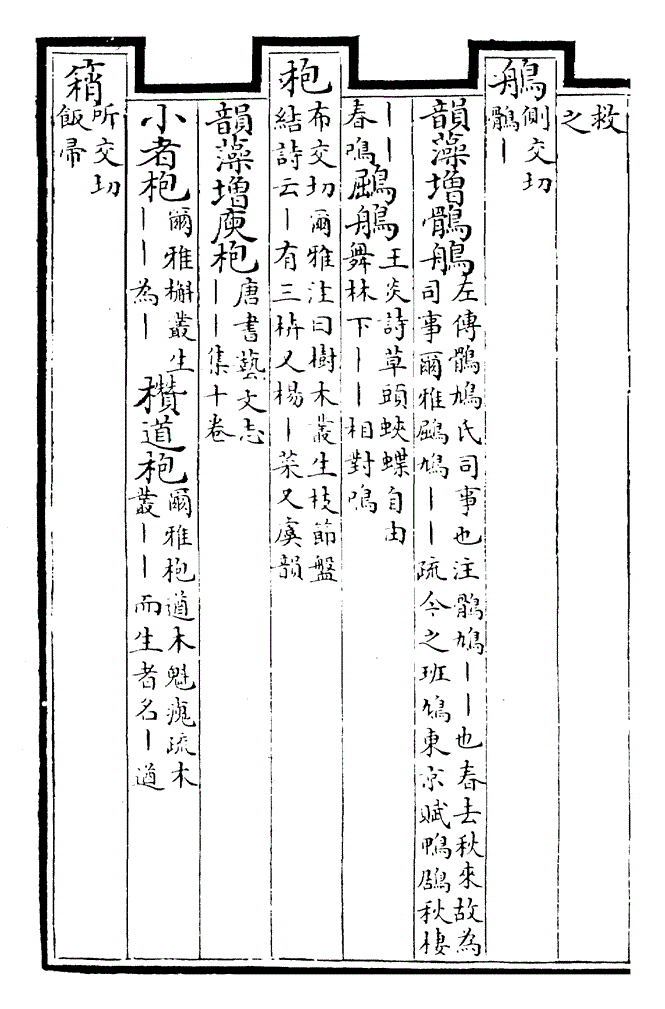 救
之
鵃側交切
鶻丨
韻藻增鶻鵃左傳鶻鳩氏司事也注鶻鳩丨丨也春去秋來故為
司事爾雅鶌鳩丨丨疏今之班鳩東京賦鴨鶋秋棲
丨丨鶌鵃王炎詩草頭蛺蝶自由
春鳴舞林下丨丨相對鳴
枹布交切爾雅注曰樹木叢生枝節盤
結詩云丨有三枿又楊丨菜又虞韻
韻藻增庾枹唐書藝文志
丨丨集十卷
小者枹爾雅槲叢生
丨丨為丨
欑道枹爾雅枹遒木魁瘣疏木
叢丨丨而生者名丨遒
䈾所交切
飯帚